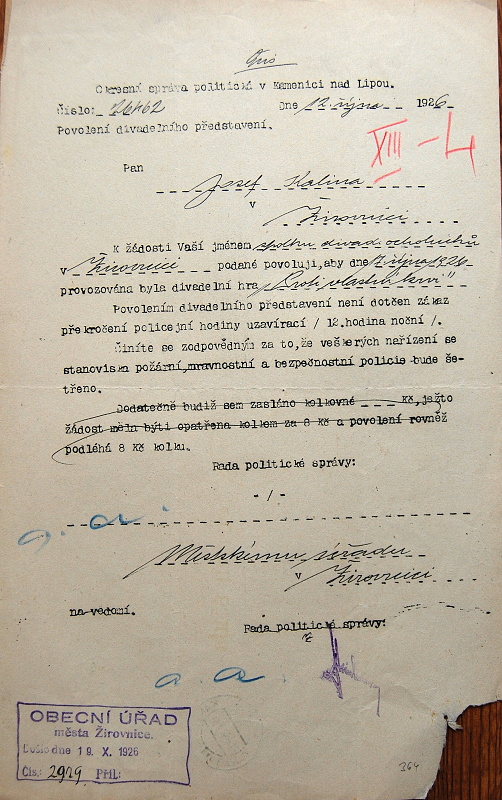 Opis
Okresní správa politická v Kamenici nad Lipou.
Číslo: 26462 Dne 12. října 1926
Povolení divadelního představení.
XIII - 4
Pan
Josef Kalina
v
Žirovnici
K žádosti Vaší jménem spolku divad. ochotníků
v Žirovnici podané povoluji, aby dne 17. října 1926
provozována byla divadelní hra „Proti vlastní krvi"
Povolením divadelního představení není dotčen zákaz
překročení policejní hodiny uzavírací / 12. hodina noční /.
Činíte se zodpovědným za to, že veškerých nařízení se
stanoviska požární, mravnostní a bezpečnostní policie bude še-
třeno.
Dodatečně budiž sem zasláno kolkovné Kč, ježto
žádost měla býti opatřena kolkem za 8 Kč a povolení rovněž
podléhá 8 Kč kolku.
Rada politické správy:
-/-
a. a.
Městskému úřadu
v Žirovnici
na vědomí.
Rada politické správy:
a. a.
OBECNÍ ÚŘAD
města Žirovnice.
Došlo dne 19. X. 1926
Čís.: 2929 Příl.:
364